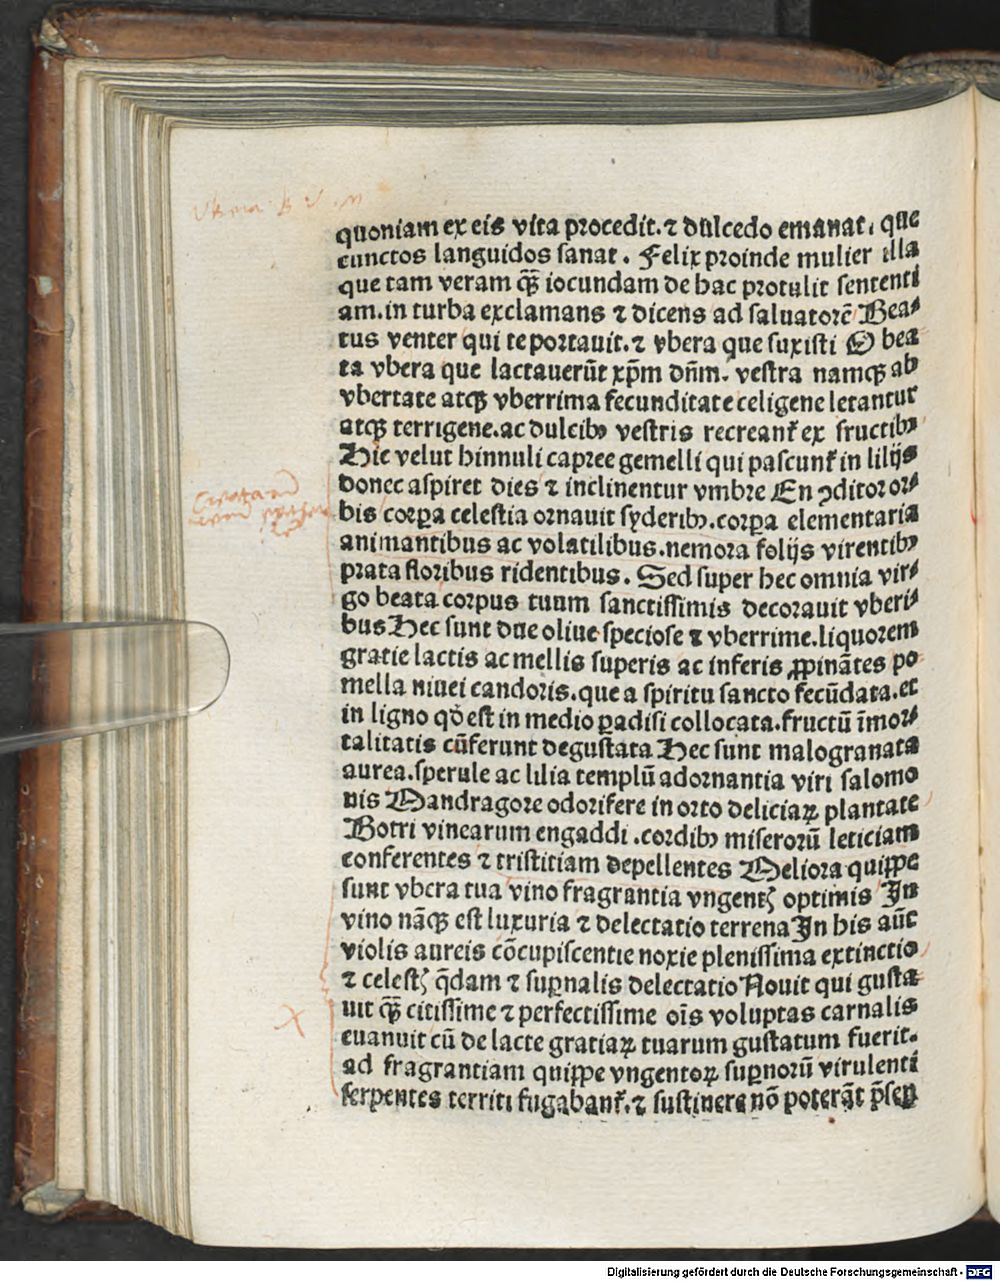 quoniam ex eis vita procedit. ⁊ dulcedo emanat, que
cunctos languidos sanat. Felix proinde mulier illa
que tam veram qꝫ̃ iocundam de hac protulit sententi
am. in turba exclamans ⁊ dicens ad saluatorē Bea⸗
tus venter qui te portauit. ⁊ vbera que suxisti O bea
ta vbera que lactauerūt xp̄m dn̄m. vestra namqꝫ ab
vbertate atqꝫ vberrima fecunditate celigene letantur
atqꝫ terrigene. ac dulcibꝰ vestris recreant᷑ ex fructibꝰ
Hic velut hinnuli capree gemelli qui pascunt᷑ in lilijs
donec aspiret dies ⁊ inclinentur vmbre En ↄditor or⸗
bis corꝑa celestia ornauit syderibꝰ. corꝑa elementaria
animantibus ac volatilibus. nemora folijs virentibꝰ
prata floribus ridentibus. Sed super hec omnia vir⸗
go beata corpus tuum sanctissimis decorauit vberi⸗
bus Hec sunt due oliue speciose ⁊ vberrime. liquorem
gratie lactis ac mellis superis ac inferis ꝓpinātes po
mella niuei candoris. que a spiritu sancto fecūdata. et
in ligno qd̄ est in medio ꝑadisi collocata. fructū īmor⸗
talitatis cūferunt degustata Hec sunt malogranata
aurea. sperule ac lilia templū adornantia viri salomo
nis Mandragore odorifere in orto deliciaꝝ plantate
Botri vinearum engaddi. cordibꝰ miserorū leticiam
conferentes ⁊ tristitiam depellentes Meliora quippe
sunt vbera tua vino fragrantia vngentꝭ optimis In
vino nāqꝫ est luxuria ⁊ delectatio terrena In his aūt
violis aureis cōcupiscentie noxie plenissima extinctio
⁊ celestꝭ q̄dam ⁊ suꝑnalis delectatio Nouit qui gusta
uit qꝫ̃ citissime ⁊ perfectissime oīs voluptas carnalis
euanuit cū de lacte gratiaꝝ tuarum gustatum fuerit.
ad fragrantiam quippe vngentoꝝ suꝑnorū virulenti
serpentes territi fugabant᷑. ⁊ sustinere nō poterāt p̄sen
Digitalisierung gefördert durch die Deutsche Forschungsgemeinschaft - DFG